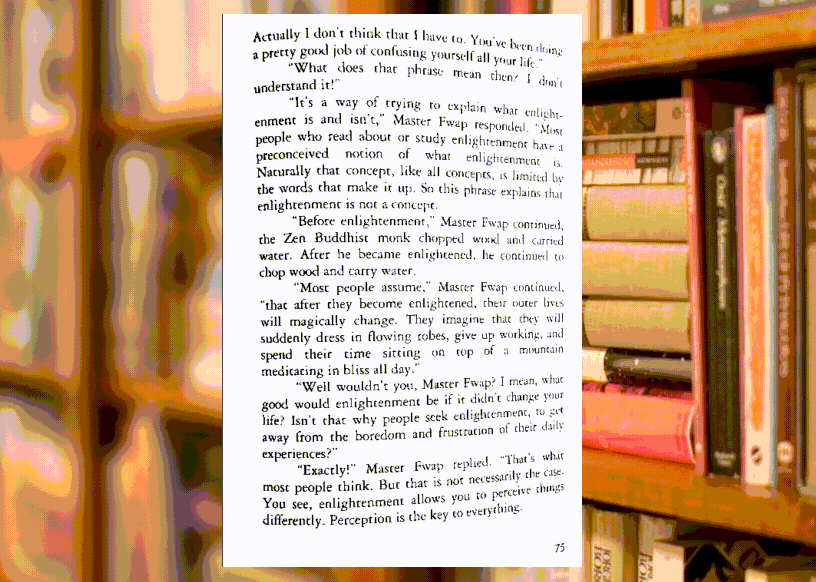 Actually I don't think that I have to. You've been doing
a pretty good job of confusing yourself all your life."
"What does that phrase mean then? I don't
understand it!"
"It's a way of trying to explain what enlight-
enment is and isn't," Master Fwap responded. "Most
people who read about or study enlightenment have a
preconceived notion of what enlightenment is.
Naturally that concept, like all concepts, is limited by
the words that make it up. So this phrase explains that
enlightenment is not a concept.
"Before enlightenment," Master Fwap continued,
the Zen Buddhist monk chopped wood and carried
water. After he became enlightened, he continued to
chop wood and carry water.
"Most people assume," Master Fwap continued,
"that after they become enlightened, their outer lives
will magically change. They imagine that they will
suddenly dress in flowing robes, give up working, and
spend their time sitting on top of a mountain
meditating in bliss all day."
"Well wouldn't you, Master Fwap? I mean, what
good would enlightenment be if it didn't change your
life? Isn't that why people seek enlightenment, to get
away from the boredom and frustration of their daily
experiences?"
"Exactly!" Master Fwap replied. "That's what
most people think. But that is not necessarily the case.
You see, enlightenment allows you to perceive things
differently. Perception is the key to everything.
75